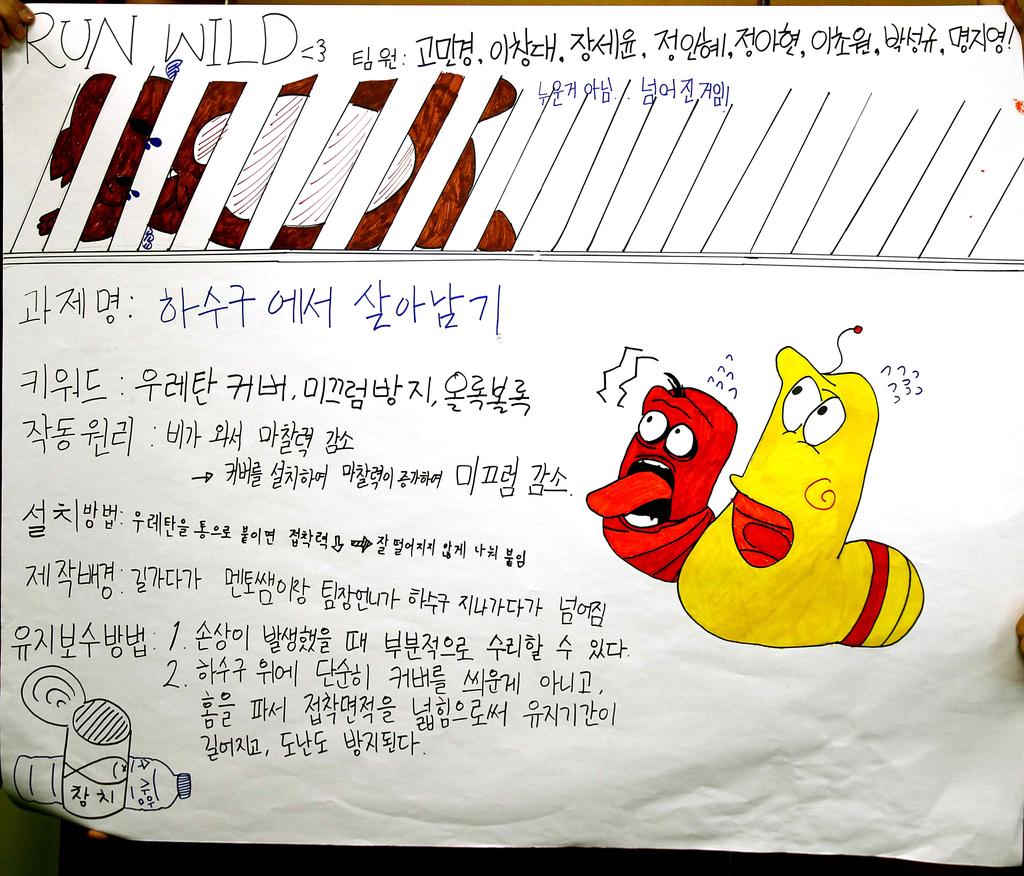 RUN WILD <3
팀원: 고민경, 이창대, 장세윤, 정인혜, 정아현, 이초원, 박성규, 명지영!
누운게 아님... 넘어진거임!
과제명: 하수구에서 살아남기
키워드: 우레탄 커버, 미끄럼방지, 올록볼록
작동원리: 비가 와서 마찰력 감소
→ 커버를 설치하여 마찰력이 증가하여 미끄럼 감소.
설치방법: 우레탄을 통으로 붙이면 접착력⇩ ⇒ 잘 떨어지지 않게 나눠 붙임
제작배경: 길가다가 멘토쌤이랑 팀장언니가 하수구 지나가다가 넘어짐
유지보수방법: 1. 손상이 발생했을 때 부분적으로 수리할 수 있다.
2. 하수구 위에 단순히 커버를 씌운게 아니고,
홈을 파서 접착면적을 넓힘으로써 유지기간이
길어지고, 도난도 방지된다.
참치